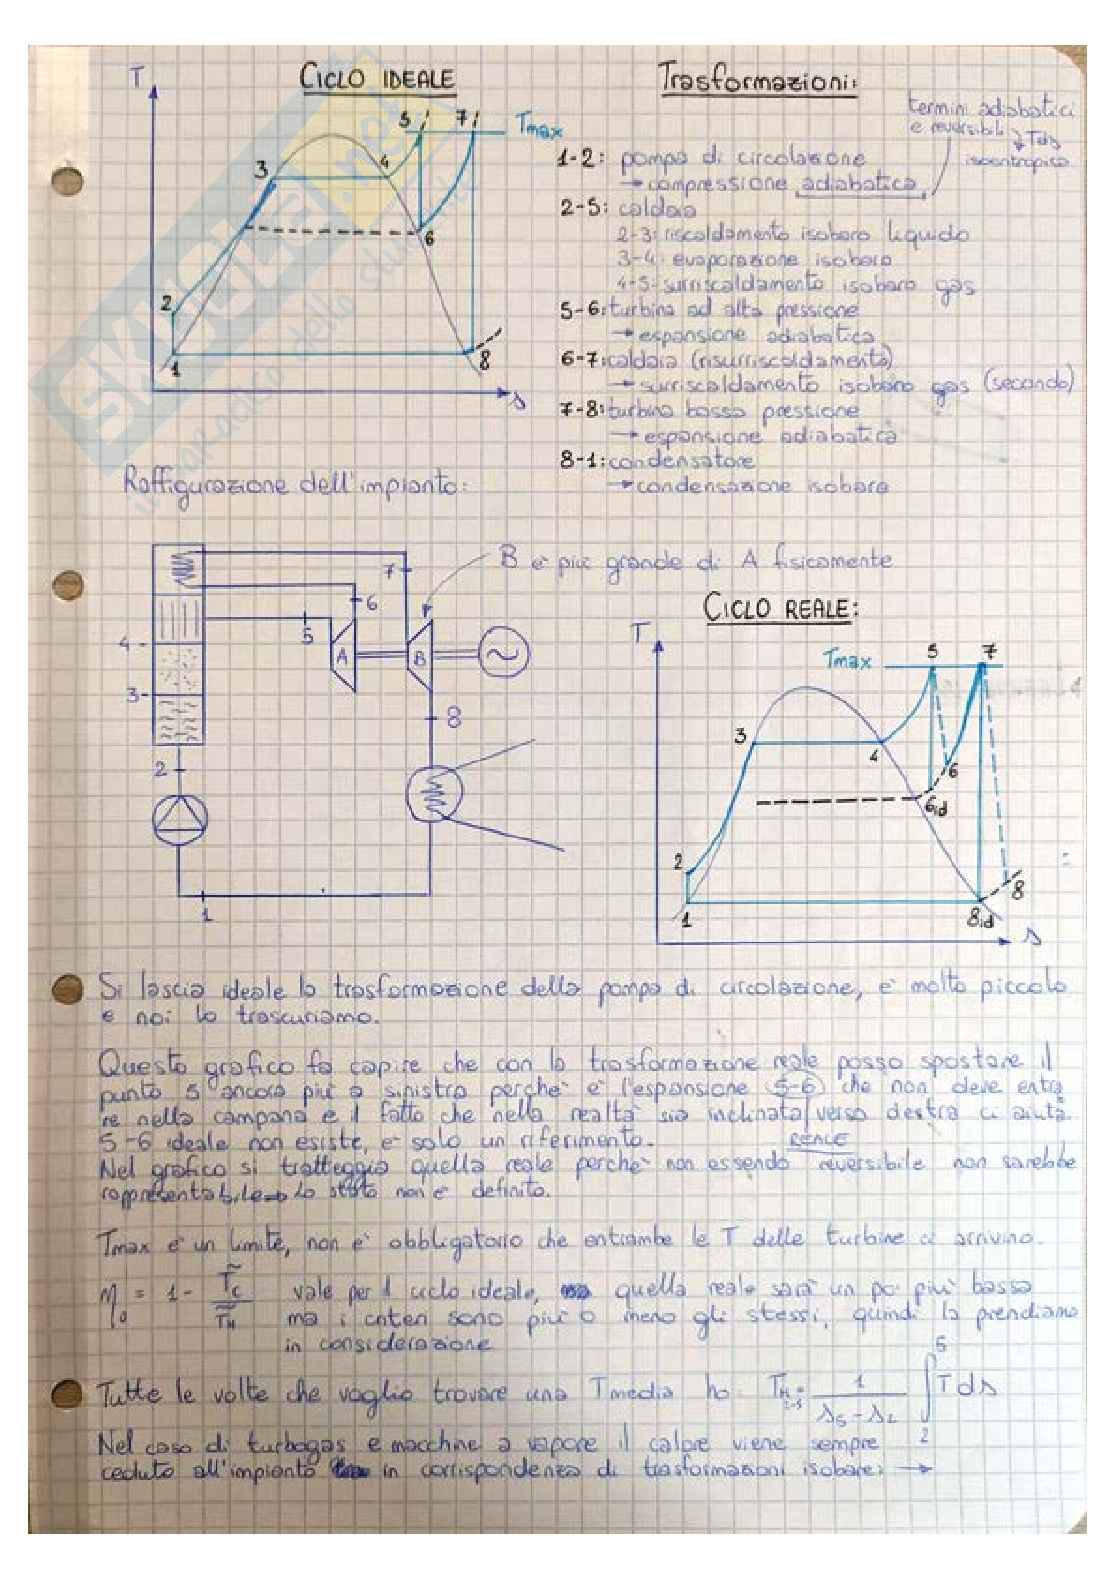 CICLO IDEALE
T
Tmax
1
2
3
4
5
6
7
8
s
Trasformazioni:
termini adiabatici
e reversibili → Tds
isoentropico
1-2: pompa di circolazione
→ compressione adiabatica
2-5: caldaia
2-3: riscaldamento isobaro liquido
3-4: evaporazione isobara
4-5: surriscaldamento isobaro gas
5-6: turbina ad alta pressione
→ espansione adiabatica
6-7: caldaia (risurriscaldamento)
→ surriscaldamento isobaro gas (secondo)
7-8: turbina bassa pressione
→ espansione adiabatica
8-1: condensatore
→ condensazione isobara
Raffigurazione dell'impianto:
B è più grande di A fisicamente
7
6
5
4
3
A
B
8
2
1
CICLO REALE:
T
Tmax
5
7
3
4
6
6id
2
1
8
8id
s
Si lascia ideale la trasformazione della pompa di circolazione, è molto piccola
e noi lo trascuriamo.
Questo grafico fa capire che con la trasformazione reale posso spostare il
punto 5 ancora più a sinistra perchè è l'espansione (5-6) che non deve entra
re nella campana e il fatto che nella realtà sia inclinata verso destra ci aiuta.
5-6 ideale non esiste, è solo un riferimento.
REALE
Nel grafico si tratteggia quella reale perchè non essendo reversibile non sarebbe
rappresentabile → lo stato non è definito.
Tmax è un limite, non è obbligatorio che entrambe le T delle turbine ci arrivino.
ηid = 1 - T̃c / T̃H vale per il ciclo ideale, quella reale sarà un po' più bassa
ma i criteri sono più o meno gli stessi, quindi la prendiamo
in considerazione
Tutte le volte che voglio trovare una Tmedia ho: TH 2-5 = 1 / (s5 - s2) ∫ 2 5 T ds
Nel caso di turbogas e macchine a vapore il calore viene sempre
ceduto all'impianto in corrispondenza di trasformazioni isobare: →
SKUOLA.net